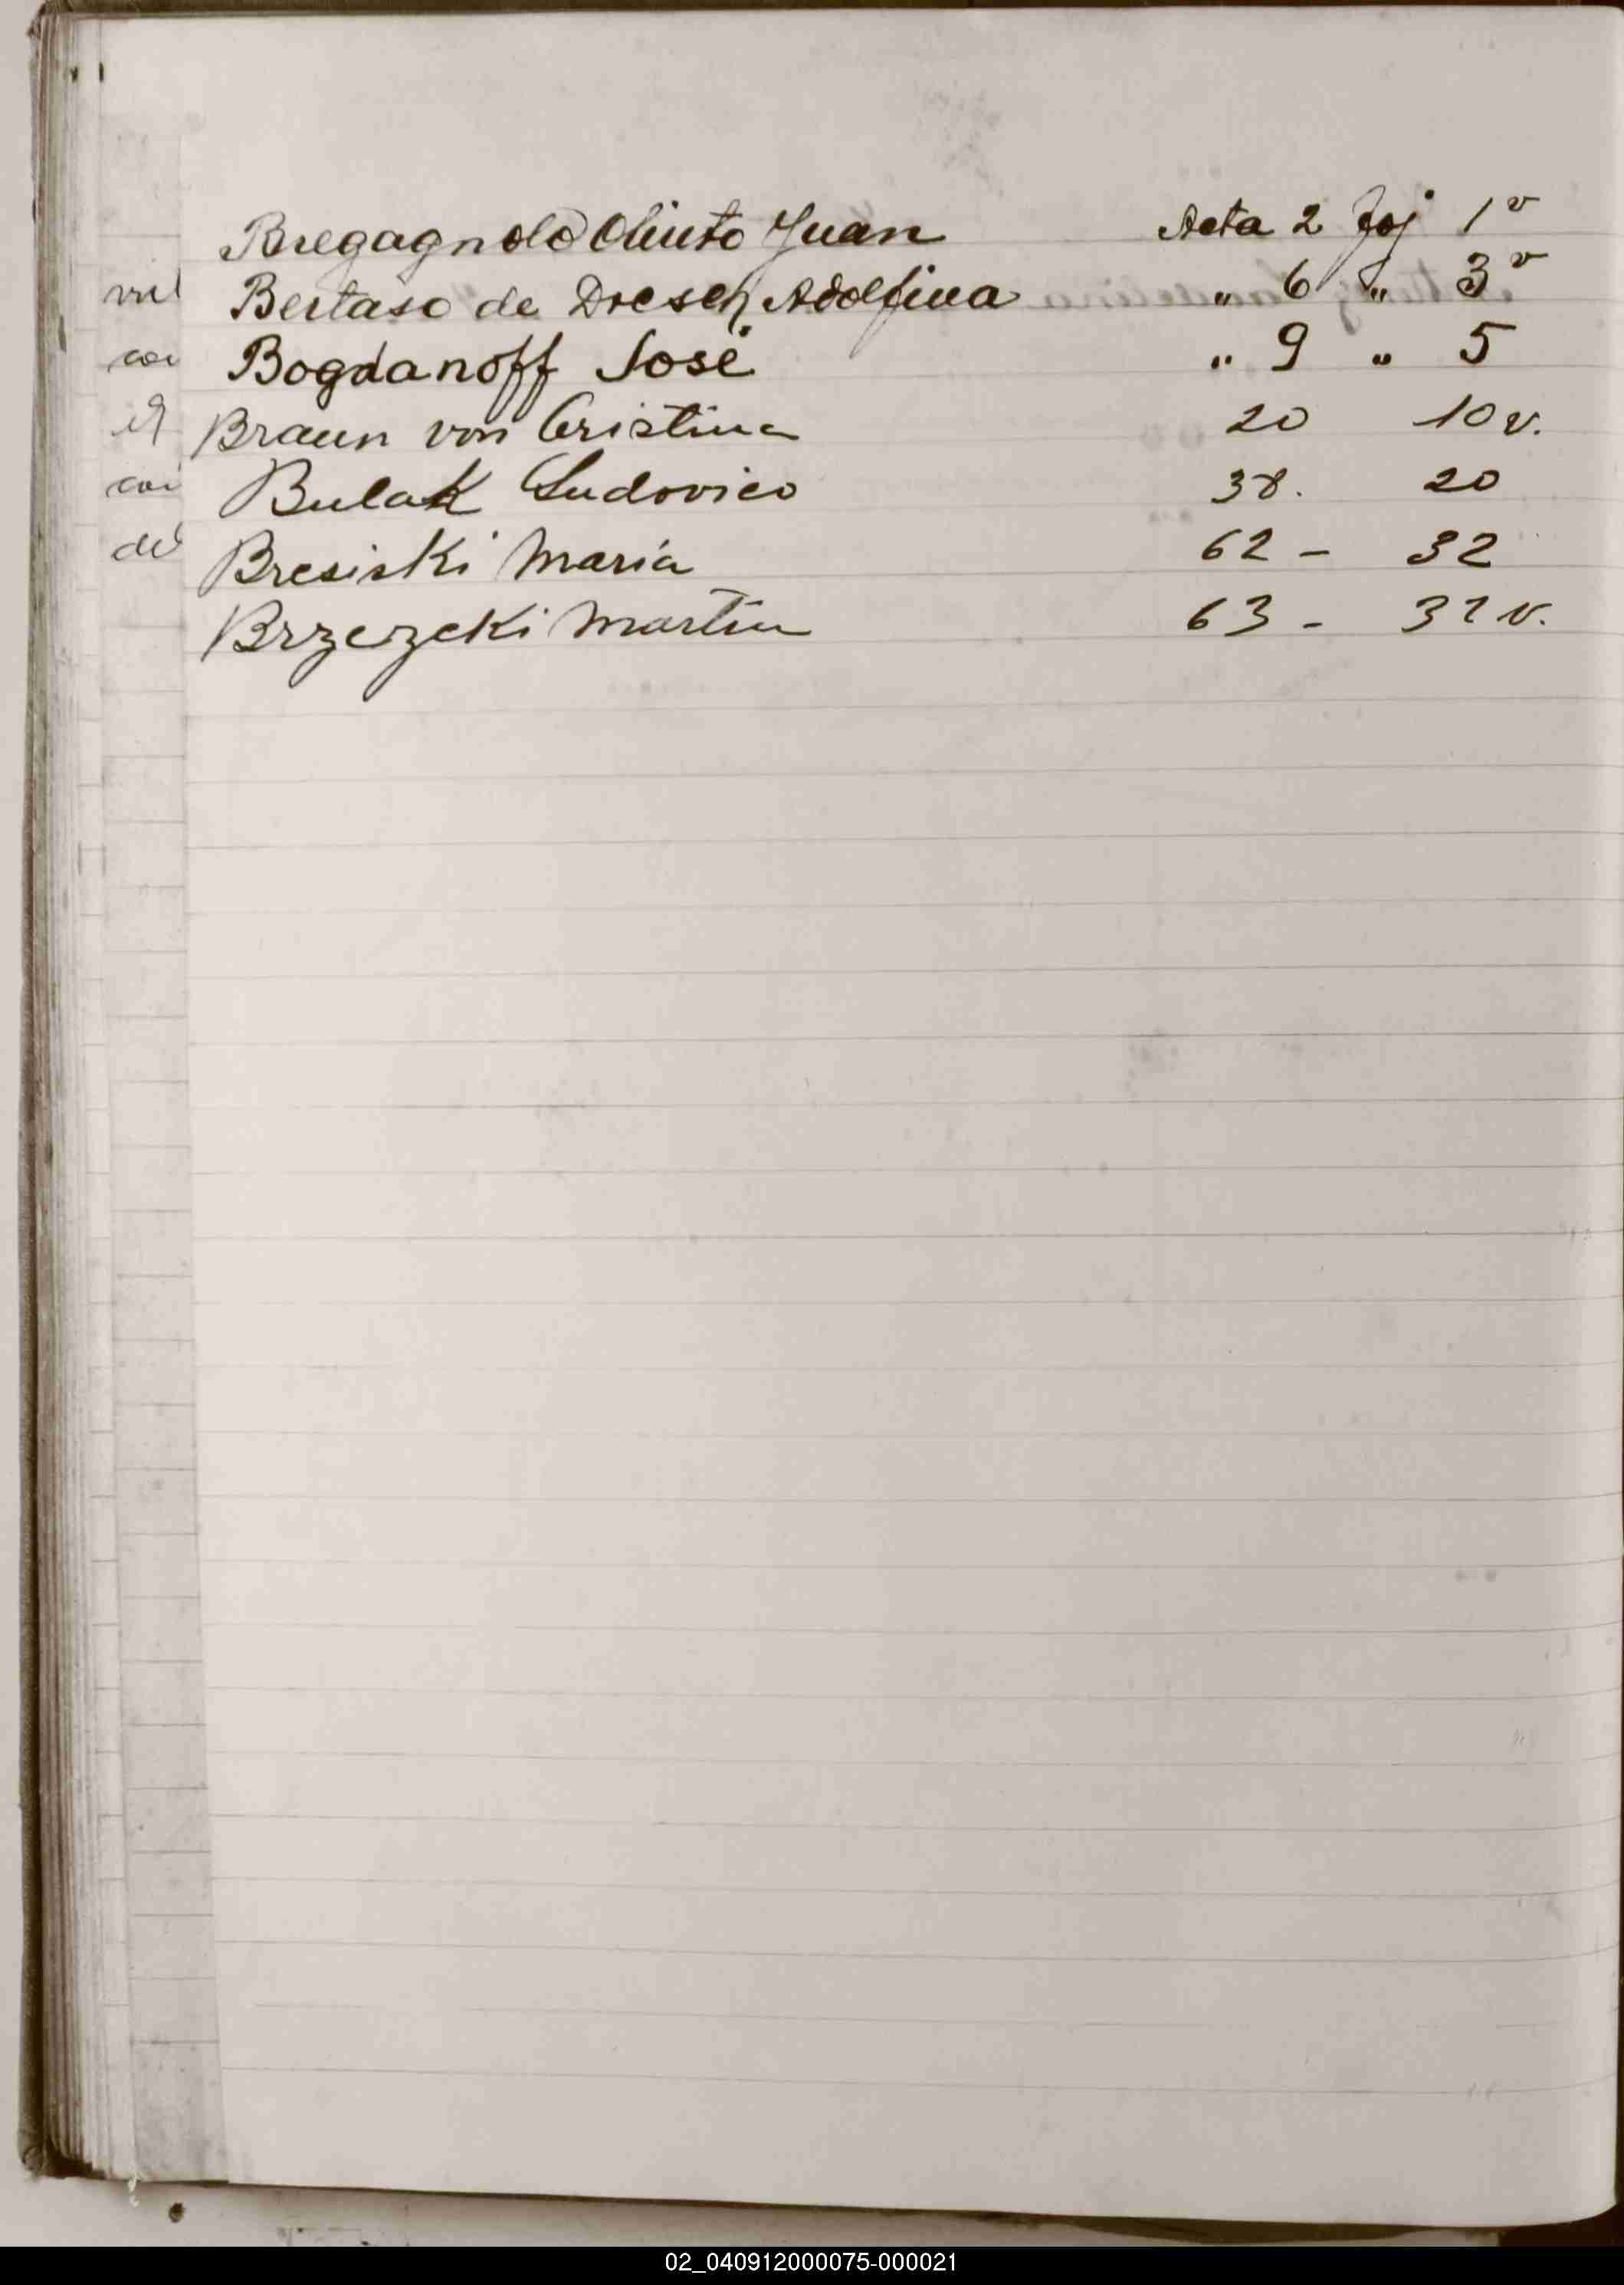 Bregagnolo Olinto Juan Acta 2 Foj 1v
Bertaso de Dresch Adolfina " 6 " 3v
Bogdanoff José " 9 " 5
Braun von Cristina 20 10 v.
Bulak Ludovico 38. 20
Bresiski Maria 62 - 32
Brzezcki Martin 63 - 32 v.
02_040912000075-000021